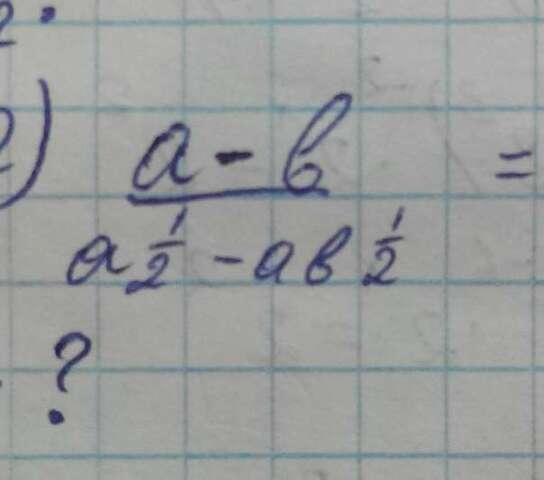 2) a - b =
a^{1/2} - ab^{1/2}
?